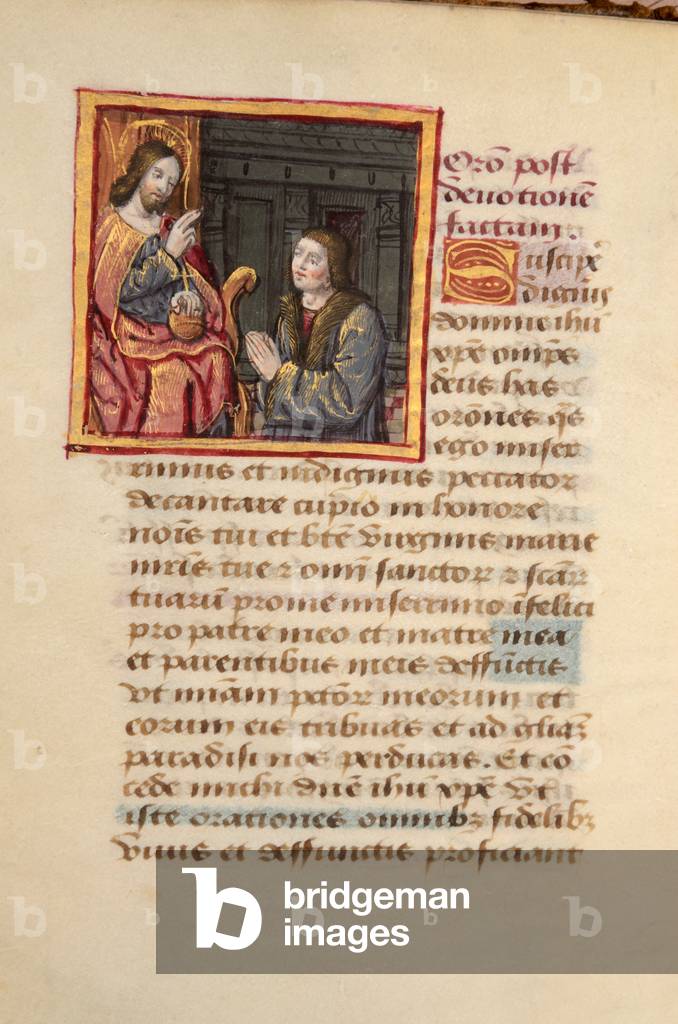 Orõ post
deuotionē
factam.
Suscipe
dignus
domine ihū
xp̄e om̄ps
deus has
orōnes q̄s
ego miser
rimus et indignus peccator
decantare cupio in honore
nois̄ tui et bt̄e Virginis marie
mr̄is tue ⁊ om̄i sanctoꝝ ⁊ scāꝝ
tuarū pro me miserrimo īfelici
pro patre meo et matre mea
et parentibus meis deffūctis
Vt mīam pctōꝝ meorum et
eorum eis tribuas et ad gliaꝫ
paradisi nos perducas. Et cō
cede michi dn̄e ihū xp̄e Vt
iste orationes omnibꝫ fidelibꝫ
Viuis et deffunctis proficiant
b bridgeman
images